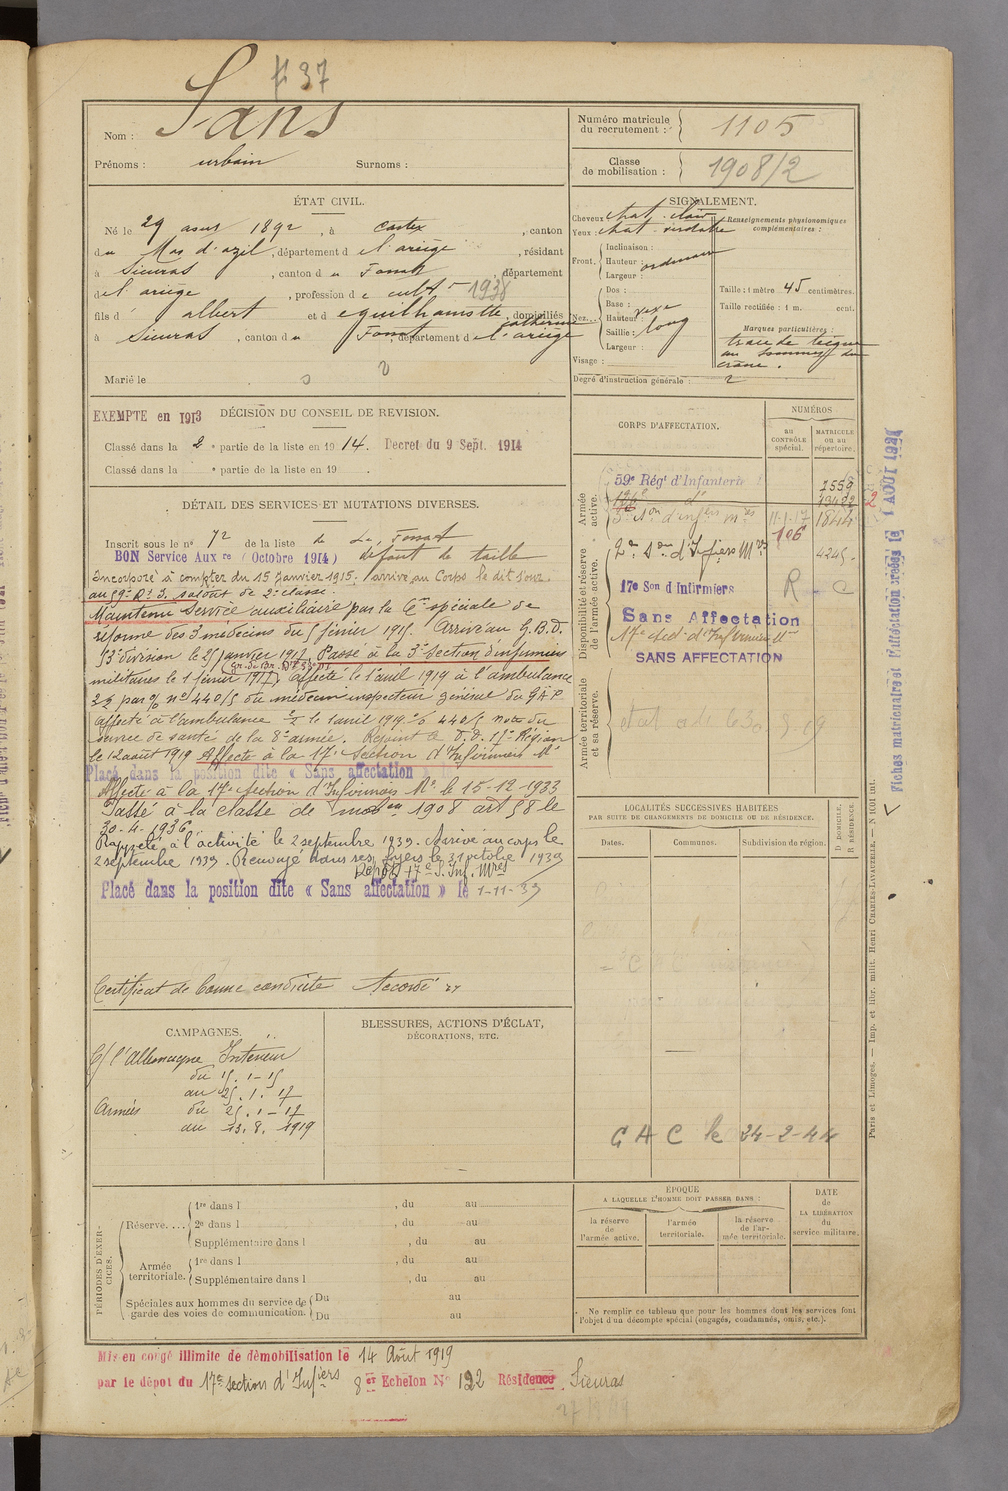 # 37
Nom : Sans
Prénoms : urbain Surnoms :
Numéro matricule du recrutement : 1105
Classe de mobilisation : 1908/2
ÉTAT CIVIL.
Né le 29 1892, à Castex, canton
du Mas d'azil, département d e l'ariège, résidant
à Sieuras, canton d u Fossat, département
de l'ariège, profession d e cult 1938
fils d' albert et d e guilhamette catherine, domiciliés
à Sieuras, canton d u Fossat, département d e l'ariège
Marié le
SIGNALEMENT.
Cheveux chat. clair
Yeux : chat. verdatre
Front, Inclinaison :
Hauteur : ordinaire
Largeur :
Nez... Dos :
Base :
Hauteur :
Saillie : long
Largeur :
Visage :
Renseignements physionomiques complémentaires :
Taille : 1 mètre 45 centimètres.
Taille rectifiée : 1 m. cent.
Marques particulières :
trace de
au sommet du
crâne.
Degré d'instruction générale : 2
EXEMPTÉ en 1913 DÉCISION DU CONSEIL DE REVISION.
Classé dans la 2e partie de la liste en 1914. Decret du 9 Sept. 1914
Classé dans la e partie de la liste en 19 .
DÉTAIL DES SERVICES ET MUTATIONS DIVERSES.
Inscrit sous le no 72 de la liste de Le Fossat
BON Service Auxre (Octobre 1914) défaut de taille
Incorporé à compter du 15 janvier 1915. arrivé au Corps le dit jour
au 59e R.I. soldat de 2e classe.
Maintenu Service auxiliaire par la Con spéciale de
réforme des 3 médecins du février 1915. Arrivé au G.B.D.
53e division le 25 janvier 1917. Passé à la 3e Section d'infirmiers
militaires le 1 février 1917. Affecté le 1 avril 1919 à l'ambulance
par no 440/S du médecin inspecteur général du
affecté à l'ambulance le 1 avril 1919. 440/S note du
service de santé de la 8e armée. Rejoint le D.D. Région
le 12 août 1919 Affecté à la 17e Section d'Infirmiers Mes
Placé dans la position dite « Sans affectation »
Affecté à la 17e Section d'Infirmiers Mes le 15-12-1933
Passé à la classe de mob 1908 art 58 le
30-4-1936
Rappelé à l'activité le 2 septembre 1939. Arrivé au corps le
2 septembre 1939. Renvoyé dans ses foyers le 31 octobre 1939
Dépôt 17e S. Inf. Mres
Placé dans la position dite « Sans affectation » le 1-11-39
Certificat de bonne conduite Accordé
CORPS D'AFFECTATION.
NUMÉROS
au CONTRÔLE spécial.
MATRICULE ou au répertoire.
Armée active.
59e Régt d'Infanterie 2559
3e Son d'infiers mres 11-1-17 1844
106
Disponibilité et réserve de l'armée active.
2e Son d'Infiers Mres 4245
17e Son d'Infirmiers R C
Sans Affectation
17e Sect. d'Infirmiers Mes
SANS AFFECTATION
Armée territoriale et sa réserve.
LOCALITÉS SUCCESSIVES HABITÉES
PAR SUITE DE CHANGEMENTS DE DOMICILE OU DE RÉSIDENCE.
Dates. Communes. Subdivision de région. D DOMICILE, R RÉSIDENCE.
G A C le 24-2-44
CAMPAGNES.
C/ l'Allemagne Intérieur
du 15.1-15
au 25.1.17
Armées du 25.1-17
au 13.8.1919
BLESSURES, ACTIONS D'ÉCLAT,
DÉCORATIONS, ETC.
PÉRIODES D'EXERCICES.
Réserve.... 1re dans l , du au
2e dans l , du au
Supplémentaire dans l , du au
Armée territoriale. 1re dans l , du au
Supplémentaire dans l , du au
Spéciales aux hommes du service de garde des voies de communication. Du au
Du au
EPOQUE
A LAQUELLE L'HOMME DOIT PASSER DANS :
la réserve de l'armée active.
l'armée territoriale.
la réserve de l'armée territoriale.
DATE de LA LIBÉRATION du service militaire.
Ne remplir ce tableau que pour les hommes dont les services font
l'objet d'un décompte spécial (engagés, condamnés, omis, etc.).
Mis en congé illimité de démobilisation le 14 Août 1919
par le dépôt du 17e section d'Infiers 8er Echelon No 192 Résidence Sieuras
Paris et Limoges. — Imp. et libr. milit. Henri CHARLES-LAVAUZELLE.
Fiches matriculaire et d'affectation créées le 1 AOUT 192